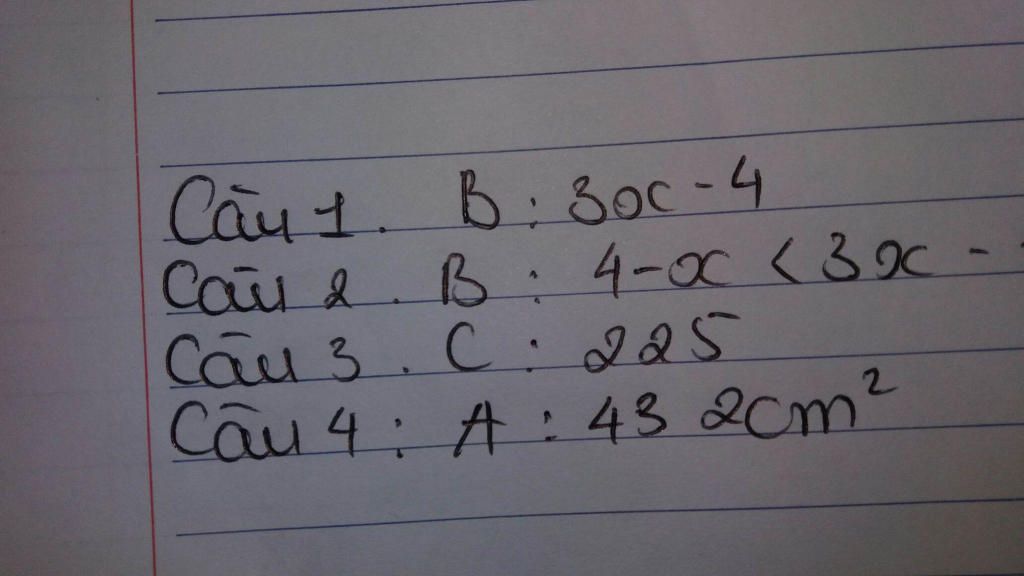 Câu 1. B: 3x - 4
Câu 2. B: 4-x < 3x -
Câu 3. C: 225
Câu 4: A: 432cm²